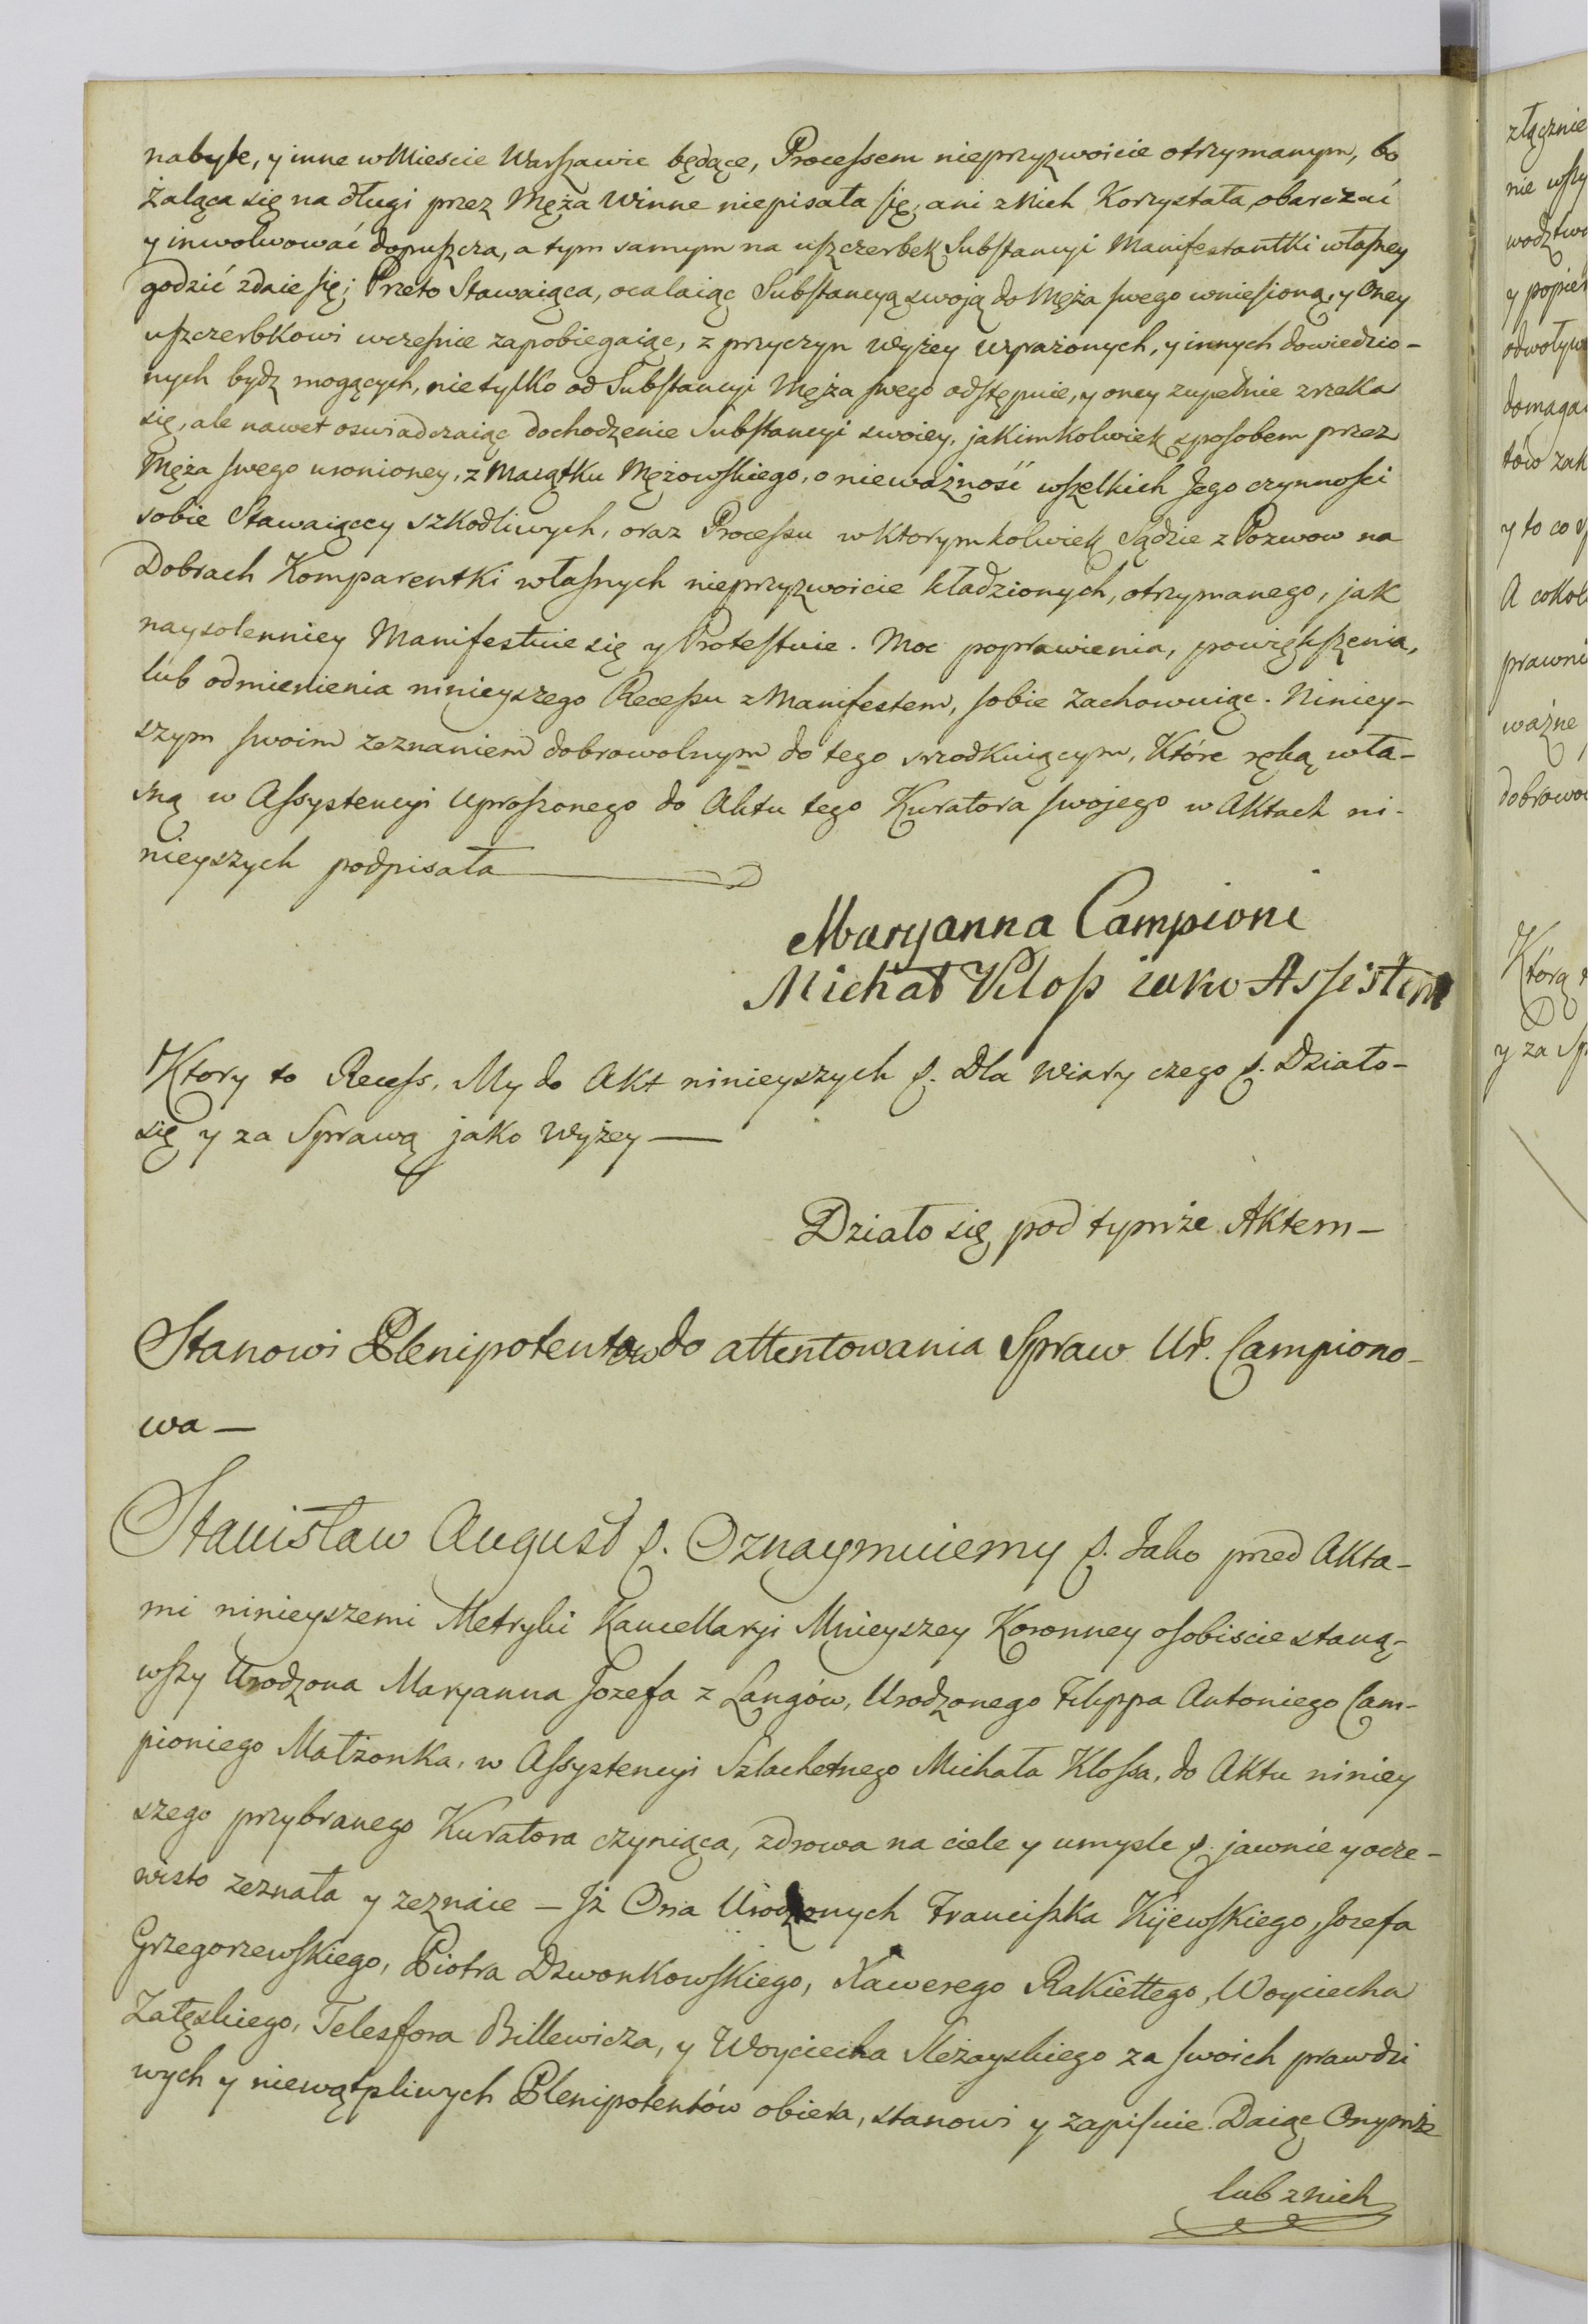 nabyte, y inne w Mieście Warszawie będące, Processem nieprzyzwoicie otrzymanym, bo
żaląca się na długi przez Męża Winne niepisała się, ani z Nich Korzystała, obarczać
y inwolwować dopuszcza, a tym samym na uszczerbek Substancyi Manifestantki własney
godzić zdaie się; Przeto Stawaiąca, ocalaiąc Substancyą swoją do Męża swego wniesioną, y Oney
uszczerbkowi wcześnie zapobiegaiąc, z przyczyn wyżey wyrażonych, y innych dowiedzio-
nych bydz mogących, nie tylko od Substancyi Męża swego odstępuie, y oney zupełnie zrzeka
się, ale nawet oswiadczaiąc dochodzenie Substancyi swoiey, jakimkolwiek sposobem przez
Męża swego uronioney, z Maiątku Mężowskiego, o nieważność wszelkich Jego czynności
sobie Stawaiącey szkodliwych, oraz Processu w ktorymkolwiek Sądzie z Pozwow na
Dobrach Komparentki własnych nieprzyzwoicie kładzionych, otrzymanego, jak
naysolenniey Manifestuie się y Protestuie. Moc poprawienia, powiększenia,
lub odmienienia ninieyszego Recessu z Manifestem, sobie zachowuiąc. Niniey-
szym swoim zeznaniem dobrowolnym do tego srzodkuiącym, Które ręką wła-
sną w Assystencyi uproszonego do Aktu tego Kuratora swojego w Aktach ni-
nieyszych podpisała
Maryanna Campioni
Michał Kloss iako Assistent
Ktory to Recess, My do Akt ninieyszych p. Dla wiary czego p. Działo-
się y za Sprawą jako wyżey —
Działo się pod tymże Aktem —
Stanowi Plenipotentow do attentowania Spraw Ur. Campiono-
wa —
Stanisław August p. Oznaymuiemy p. Jako przed Akta-
mi ninieyszemi Metryki Kancellaryi Mnieyszey Koronney osobiscie staną-
wszy Urodzona Maryanna Jozefa z Langów, Urodzonego Filippa Antoniego Cam-
pioniego Małżonka, w Assystencyi Szlachetnego Michała Klossa, do Aktu niniey
szego przybranego Kuratora czyniąca, zdrowa na ciele y umysle p. jawnie y ocze-
wisto zeznała y zeznaie — Iż Ona Urodzonych Franciszka Kijewskiego, Jozefa
Grzegorzewskiego, Piotra Dzwonkowskiego, Xawerego Rakiettego, Woyciecha
Załęskiego, Telesfora Billewicza, y Woyciecha Sleżayskiego za swoich prawdzi
wych y niewątpliwych Plenipotentów obiera, stanowi y zapisuie. Daiąc Onymże
lub z nich
złącznie
nie wszy
wodztw
y popier
odwoływ
domaga
tów zak
y to co
A cokol
prawni
ważne
dobrowo
Którą
y za Sp